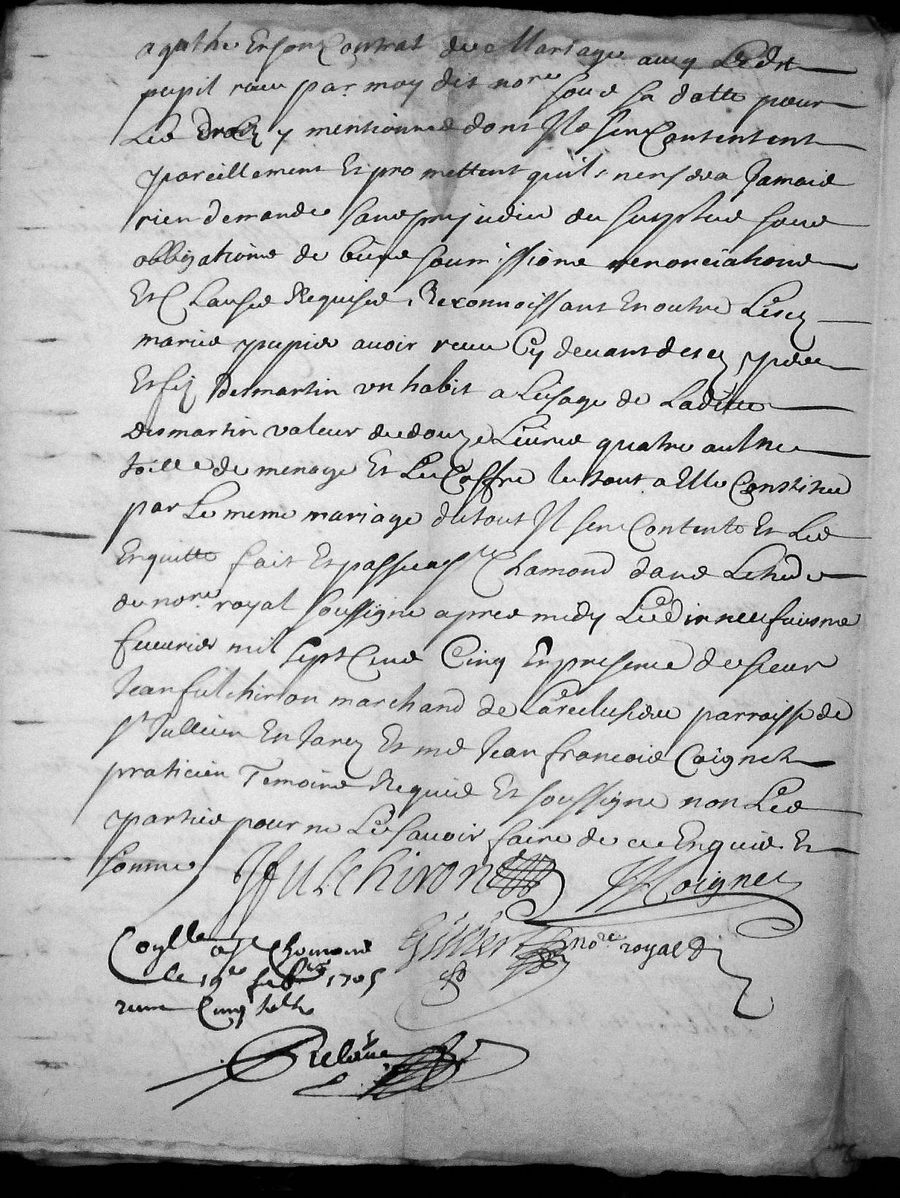 agathe En son Contrat de Mariage avec Ledit
pupil receu par moy dit nore sous sa datte pour
Les Droits y mentionnes dont Ils sen Contentent
pareillement Et promettent quil nen sera Jamais
rien demande sans prejudice du surplus sous
obligations de biens soumissions renonciations
Et Clauses Requises Reconnoissant En outre Lesd
maries pupil avoir receu Cy devant desd pere
Et fils Desmartin un habit a Lusage de Laditte
Desmartin valeur de douze Livres quatre aulnes
toille de menage Et Le Coffre le tout a Elle Constitue
par Le meme mariage du tout Il sen Contente Et Les
En quitte fait Et passe a st Chamond dans Letude
du nore royal soussigne apres midy Le dix neufviesme
fevrier mil sept Cens Cinq En presence de sieur
Jean fulchiron marchand de La parroisse de
st Jullien En Jarez Et me Jean francois Coignet
praticien Temoins Requis Et soussigne non Les
parties pour ne Le scavoir faire de ce Enquis Et
somme JFulchiron JFCoignet
Collé a st Chomond
le 19e febr 1705 nore royal
receu Cinq sols